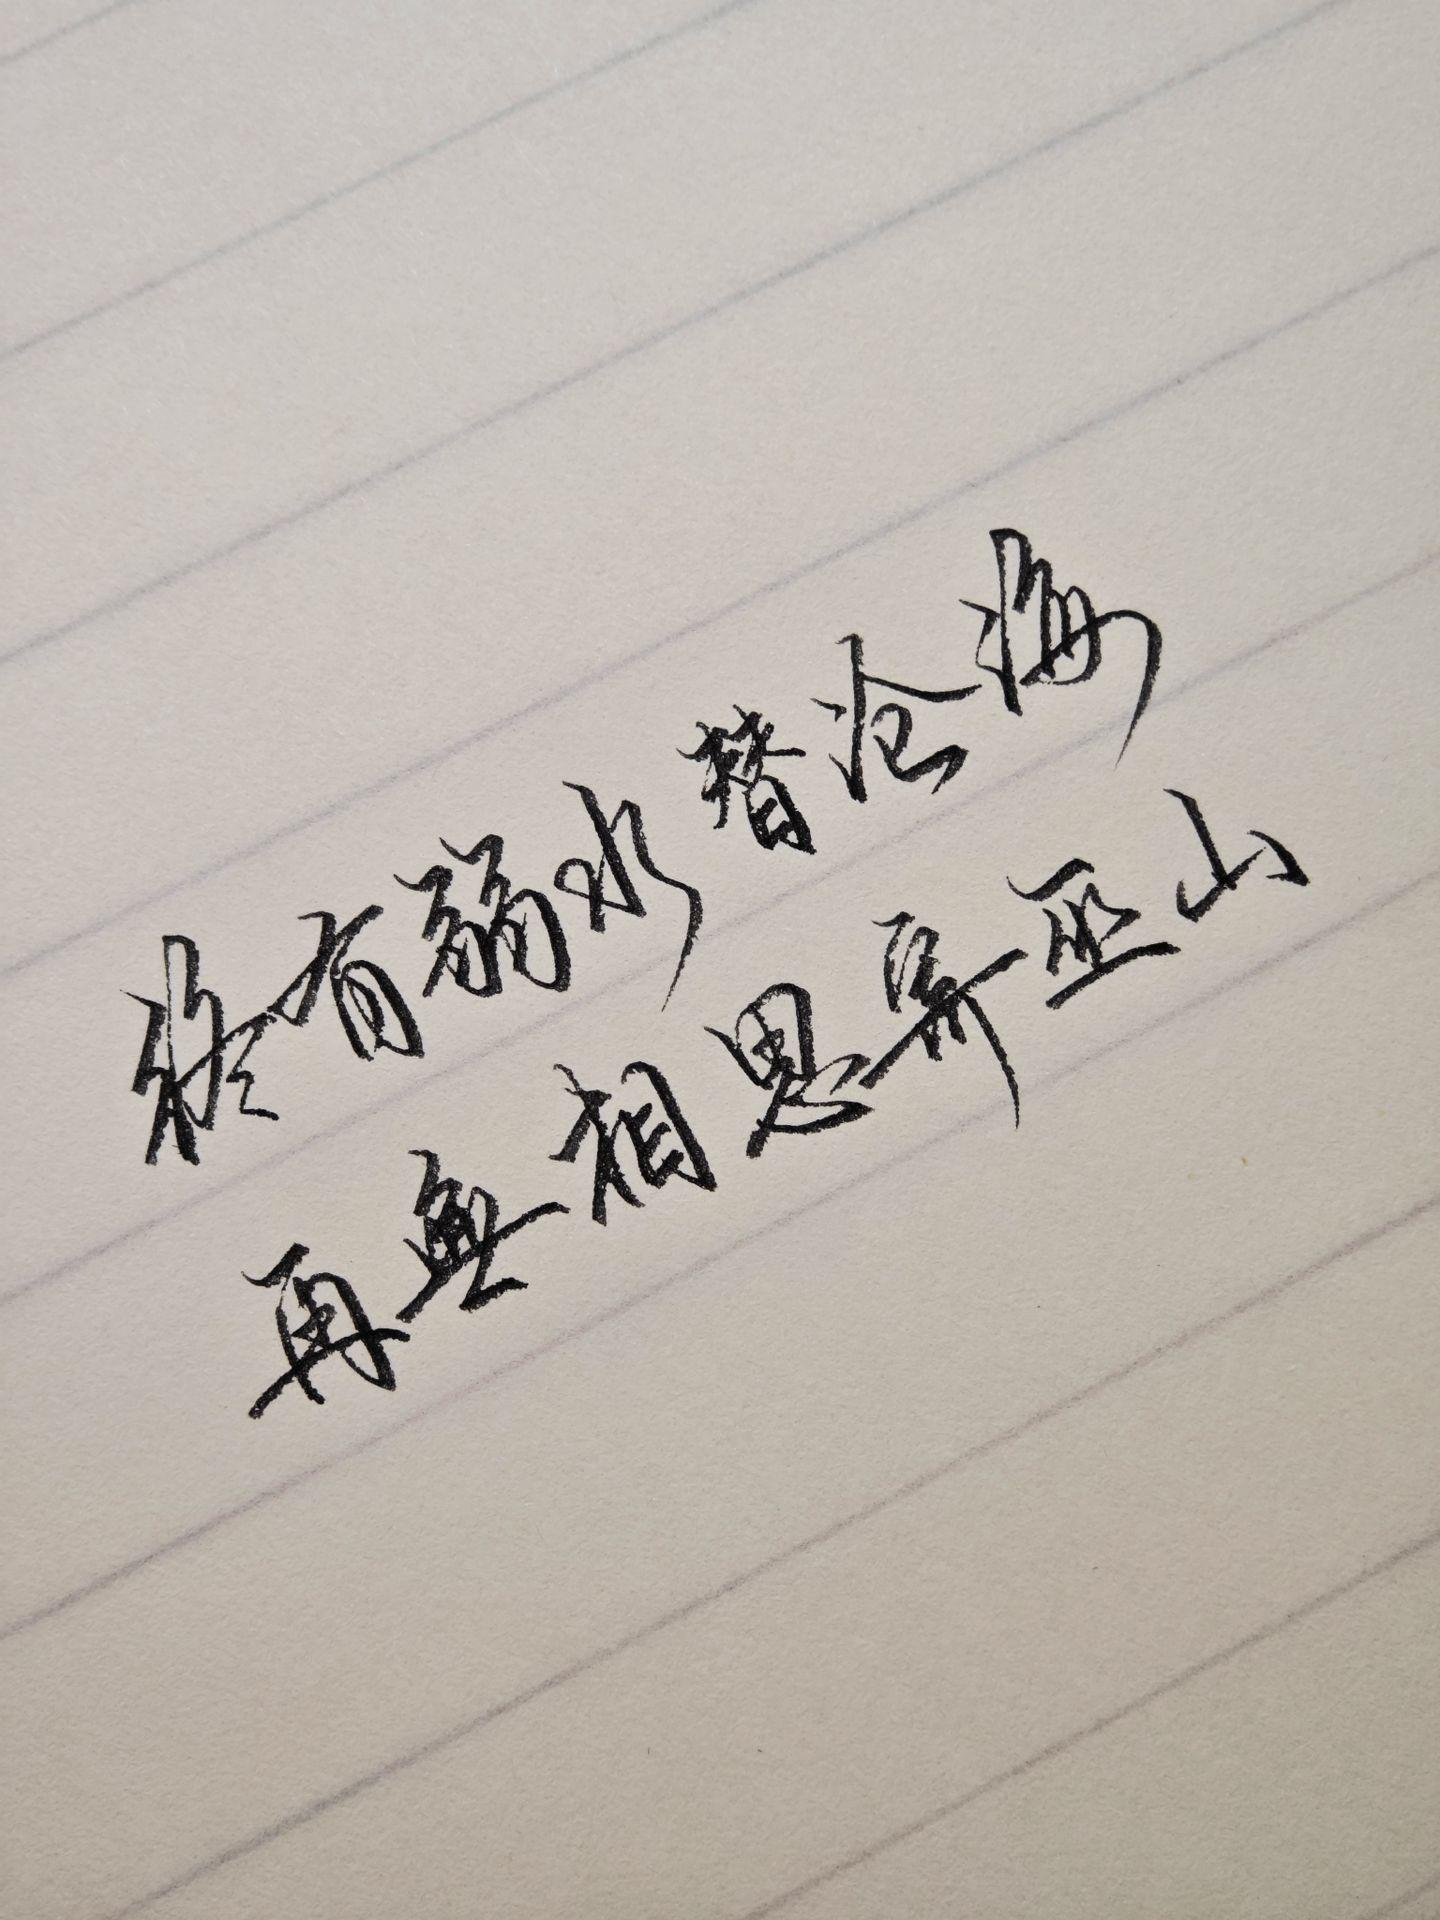 终有弱水替沧海
再無相思寄巫山